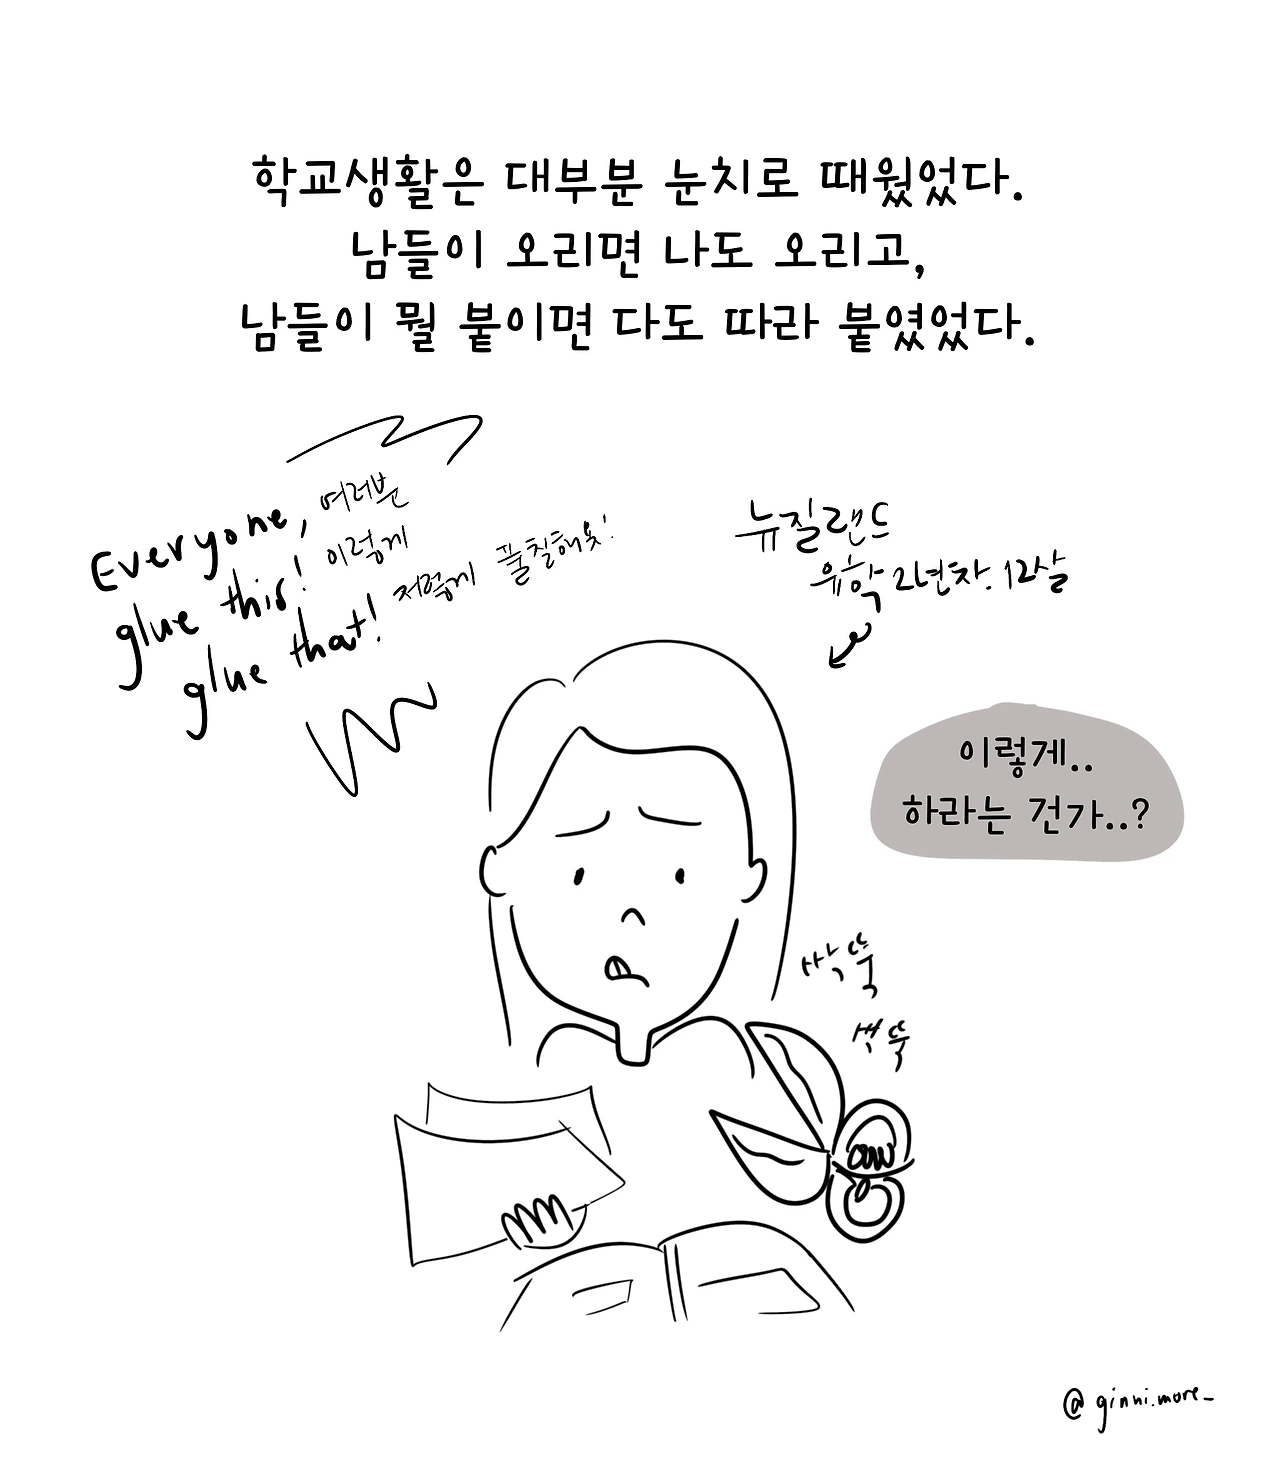 학교생활은 대부분 눈치로 때웠었다.
남들이 오리면 나도 오리고,
남들이 뭘 붙이면 다도 따라 붙였었다.
Everyone, 여러분
glue this! 이렇게
glue that! 저렇게 풀칠해욧!
뉴질랜드
유학 2년차. 12살
이렇게..
하라는 건가..?
싹뚝
싹뚝
@ginni.more_